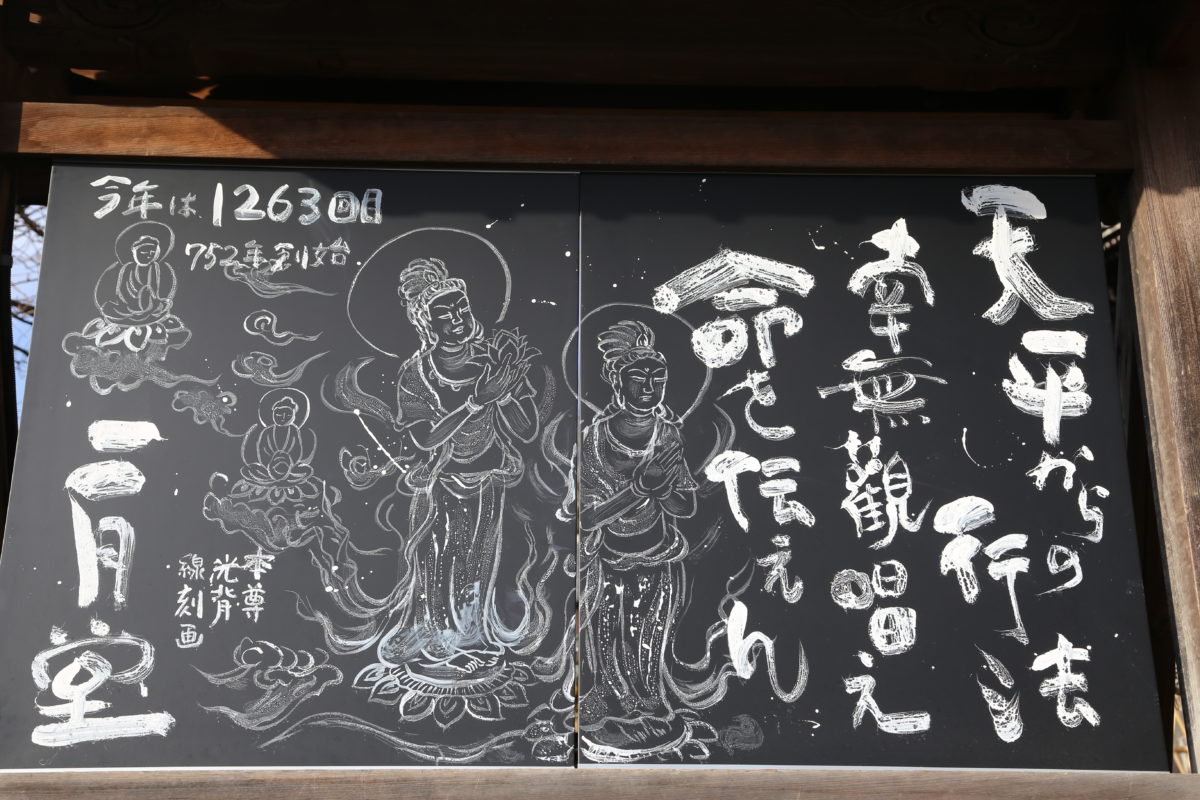 天平からの
行法
南無觀唱え
命を伝えん
今年は1263回目
752年創始
本尊
光背
線刻画
二月堂